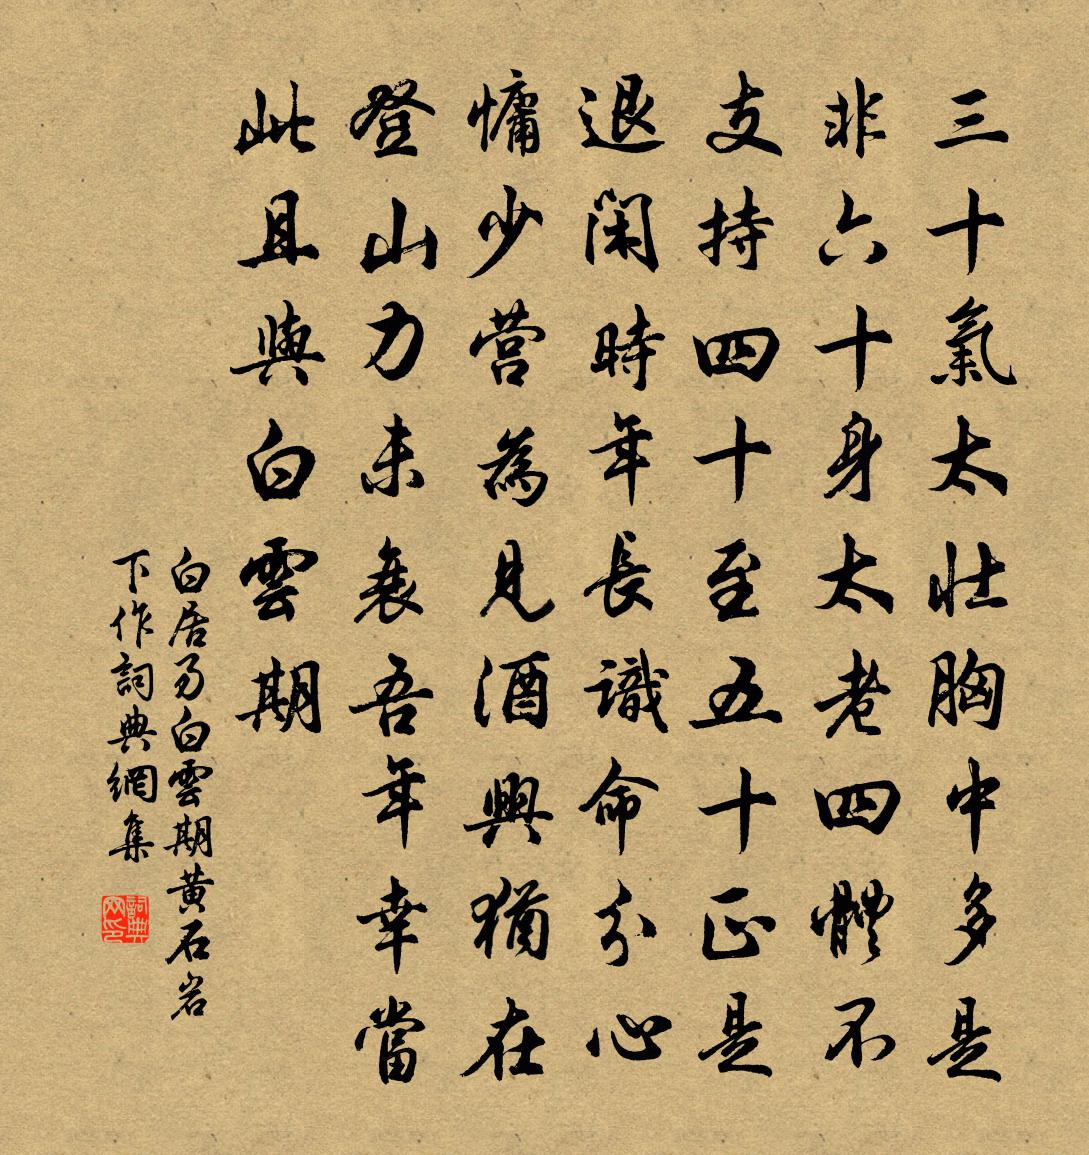 三十氣太壯胸中多是
非六十身太老四體不
支持四十至五十正是
退閑時年長識命分心
慵少营為見酒興猶在
登山力未衰吾年幸當
此且與白雲期
白居易白雲期黄石岩
下作詞典網集
詞典网印